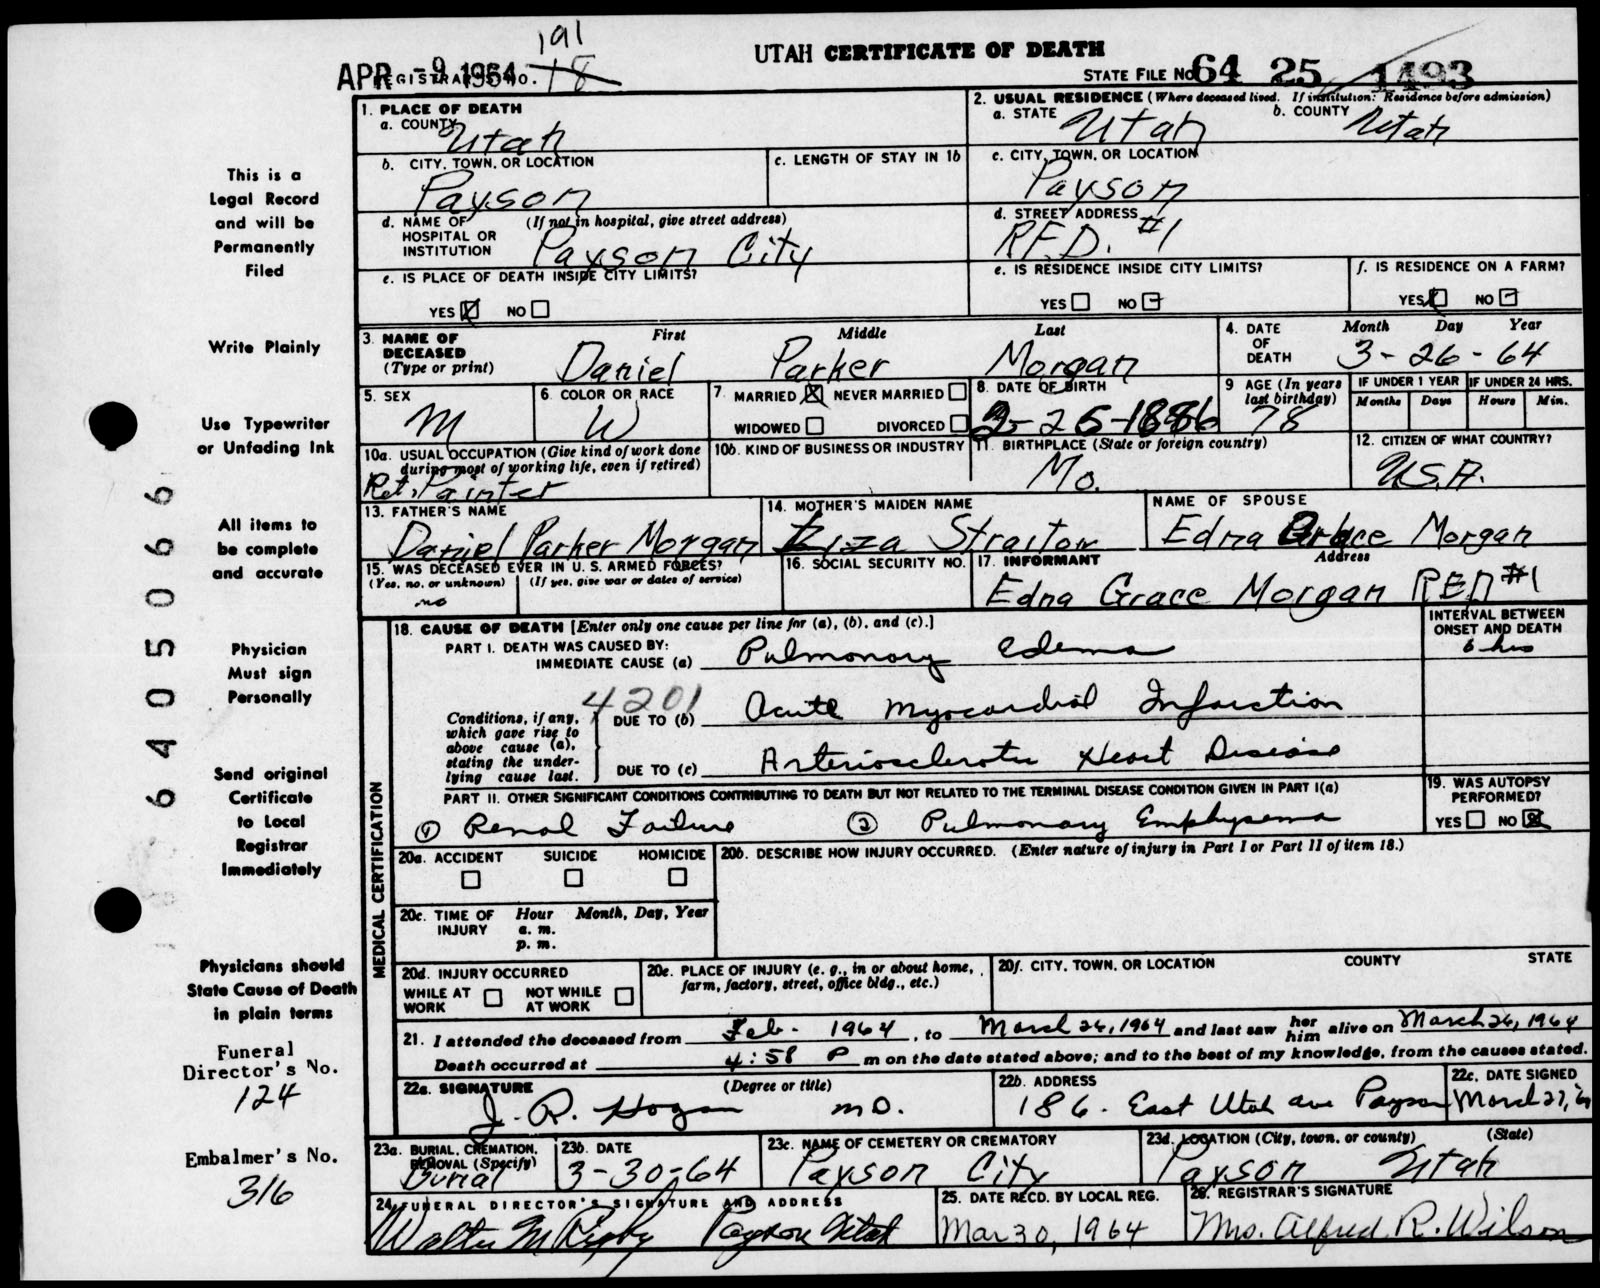 191
APR -9 1964 REGISTRAR'S NO. 18
UTAH CERTIFICATE OF DEATH
STATE FILE NO. 64 25 1493
1. PLACE OF DEATH
a. COUNTY Utah
2. USUAL RESIDENCE (Where deceased lived. If institution: Residence before admission)
a. STATE Utah b. COUNTY Utah
b. CITY, TOWN, OR LOCATION Payson
c. LENGTH OF STAY IN 1b
c. CITY, TOWN, OR LOCATION Payson
d. NAME OF HOSPITAL OR INSTITUTION (If not in hospital, give street address) Payson City
d. STREET ADDRESS R.F.D. #1
e. IS PLACE OF DEATH INSIDE CITY LIMITS?
YES NO
e. IS RESIDENCE INSIDE CITY LIMITS?
YES NO
f. IS RESIDENCE ON A FARM?
YES NO
3. NAME OF DECEASED (Type or print)
First Middle Last
Daniel Parker Morgan
4. DATE OF DEATH Month Day Year
3-26-64
5. SEX M
6. COLOR OR RACE W
7. MARRIED NEVER MARRIED
WIDOWED DIVORCED
8. DATE OF BIRTH 2-26-1886
9 AGE (In years last birthday) 78
IF UNDER 1 YEAR Months Days
IF UNDER 24 HRS. Hours Min.
10a. USUAL OCCUPATION (Give kind of work done during most of working life, even if retired)
Ret. Painter
10b. KIND OF BUSINESS OR INDUSTRY
11. BIRTHPLACE (State or foreign country)
Mo.
12. CITIZEN OF WHAT COUNTRY?
U.S.A.
13. FATHER'S NAME
Daniel Parker Morgan
14. MOTHER'S MAIDEN NAME
Liza Straitor
NAME OF SPOUSE
Edna Grace Morgan
15. WAS DECEASED EVER IN U.S. ARMED FORCES?
(Yes, no, or unknown) (If yes, give war or dates of service)
no
16. SOCIAL SECURITY NO.
17. INFORMANT Address
Edna Grace Morgan RFD #1
MEDICAL CERTIFICATION
18. CAUSE OF DEATH [Enter only one cause per line for (a), (b), and (c).]
INTERVAL BETWEEN ONSET AND DEATH
PART I. DEATH WAS CAUSED BY:
IMMEDIATE CAUSE (a) Pulmonary Edema
6 hrs
4201
Conditions, if any, which gave rise to above cause (a), stating the underlying cause last.
DUE TO (b) Acute Myocardial Infarction
DUE TO (c) Arteriosclerotic Heart Disease
PART II. OTHER SIGNIFICANT CONDITIONS CONTRIBUTING TO DEATH BUT NOT RELATED TO THE TERMINAL DISEASE CONDITION GIVEN IN PART I(a)
① Renal Failure ② Pulmonary Emphysema
19. WAS AUTOPSY PERFORMED?
YES NO
20a. ACCIDENT SUICIDE HOMICIDE
20b. DESCRIBE HOW INJURY OCCURRED. (Enter nature of injury in Part I or Part II of item 18.)
20c. TIME OF INJURY Hour Month, Day, Year
a. m.
p. m.
20d. INJURY OCCURRED
WHILE AT WORK NOT WHILE AT WORK
20e. PLACE OF INJURY (e. g., in or about home, farm, factory, street, office bldg., etc.)
20f. CITY, TOWN, OR LOCATION COUNTY STATE
21. I attended the deceased from Feb. 1964, to March 26, 1964 and last saw her him alive on March 26, 1964
Death occurred at 4:58 P m on the date stated above; and to the best of my knowledge, from the causes stated.
22a. SIGNATURE (Degree or title)
J. R. Hogan M.D.
22b. ADDRESS
186 East Utah Ave Payson
22c. DATE SIGNED
March 27, 64
23a. BURIAL, CREMATION, REMOVAL (Specify)
Burial
23b. DATE
3-30-64
23c. NAME OF CEMETERY OR CREMATORY
Payson City
23d. LOCATION (City, town, or county) (State)
Payson Utah
24. FUNERAL DIRECTOR'S SIGNATURE AND ADDRESS
Walter M Rigby Payson Utah
25. DATE RECD. BY LOCAL REG.
Mar 30, 1964
26. REGISTRAR'S SIGNATURE
Mrs. Alfred R. Wilson
This is a
Legal Record
and will be
Permanently
Filed
Write Plainly
Use Typewriter
or Unfading Ink
All items to
be complete
and accurate
Physician
Must sign
Personally
Send original
Certificate
to Local
Registrar
Immediately
Physicians should
State Cause of Death
in plain terms
Funeral
Director's No.
124
Embalmer's No.
316
6405066